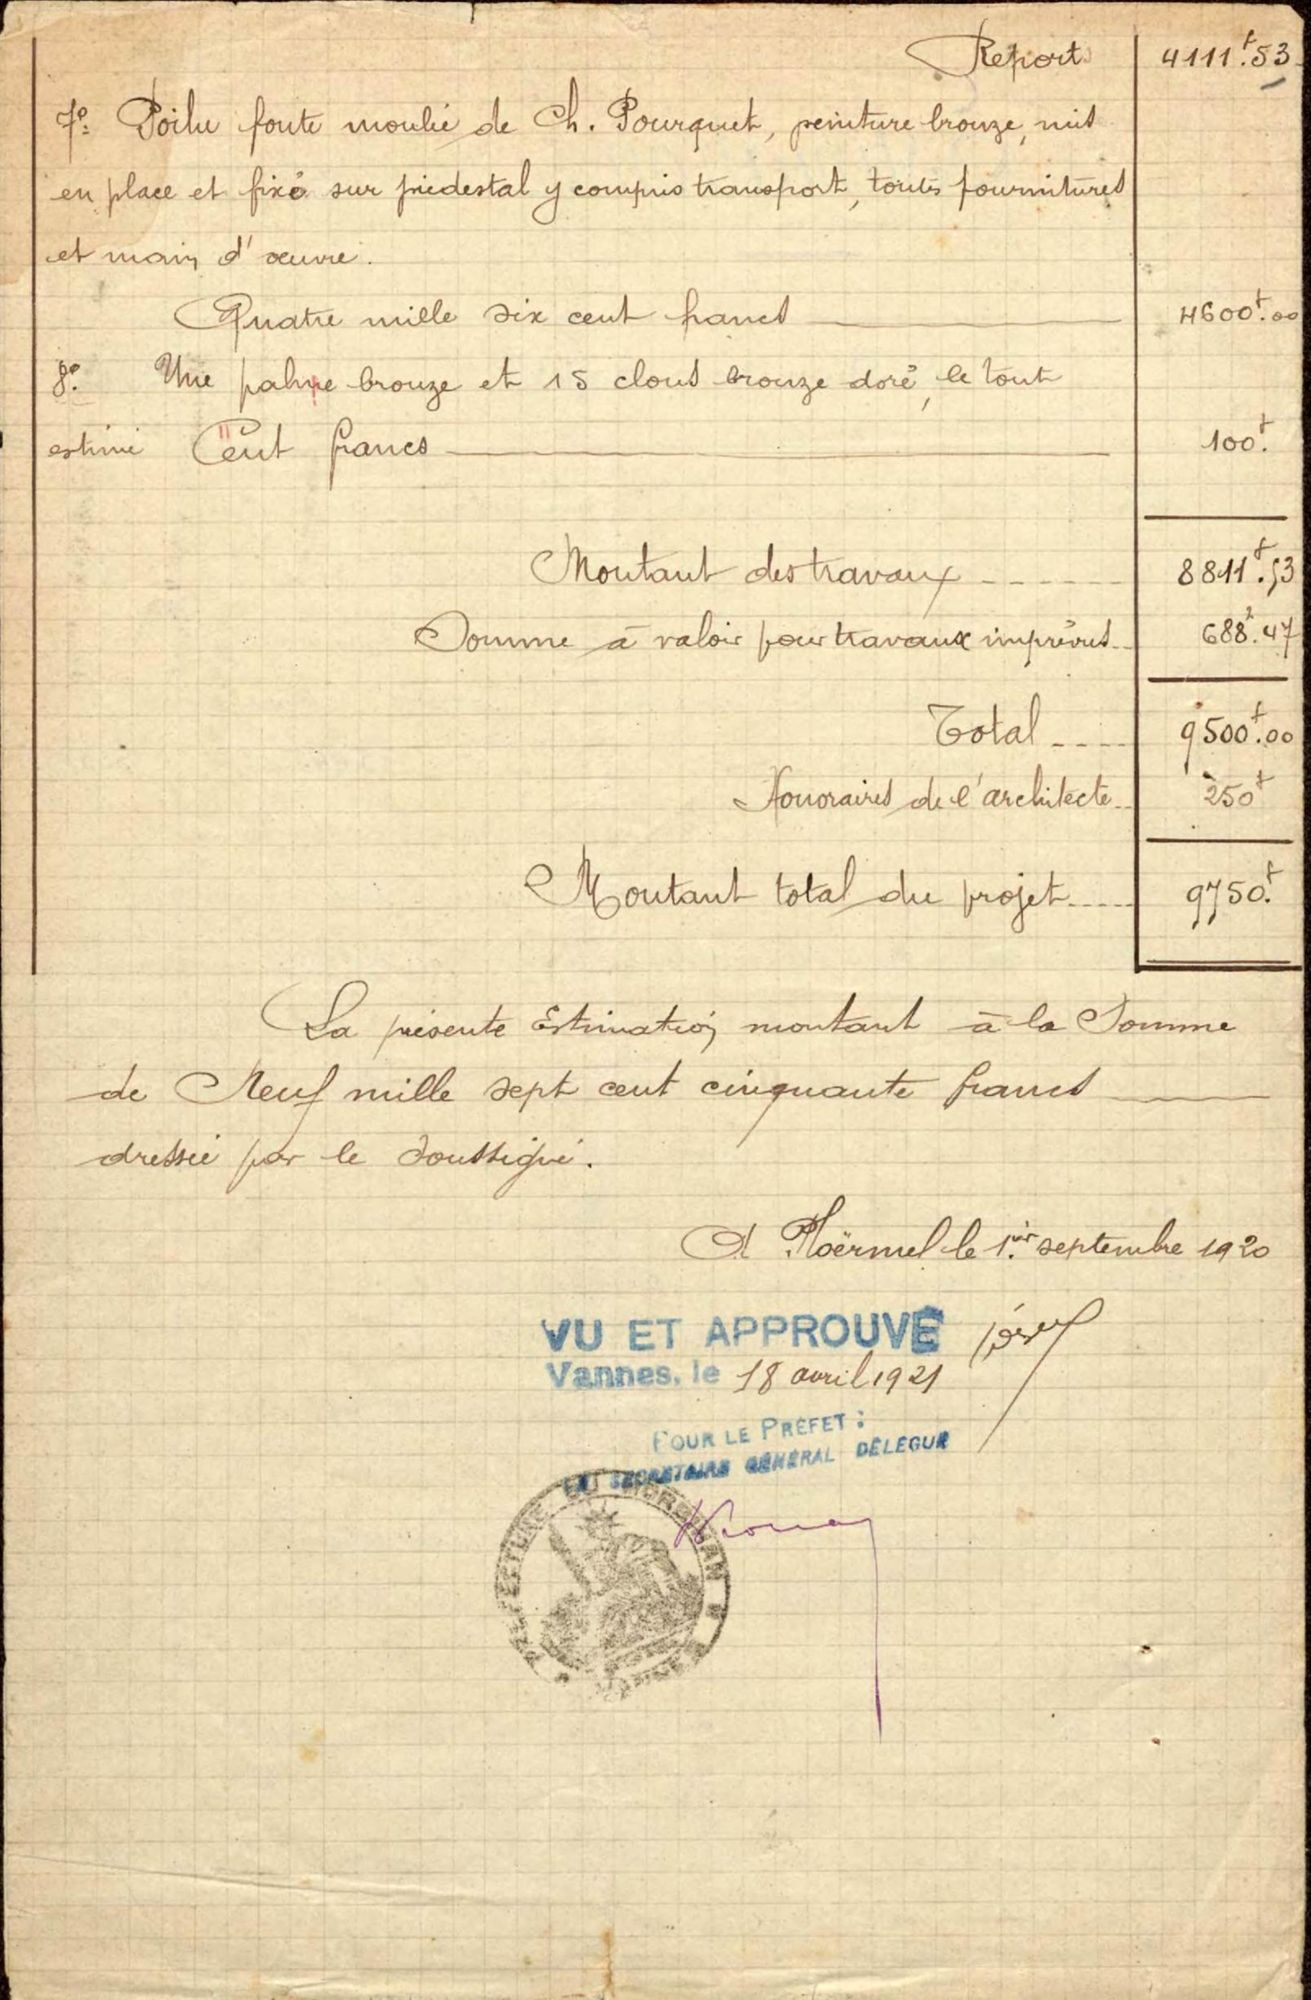 Report 4111f.53
7º: Poilu fonte moulée de Ch. Pourquet, peinture bronze, mis
en place et fixé sur piédestal y compris transport, toutes fournitures
et main d'œuvre.
Quatre mille six cent francs 4600f.00
8º. Une palme bronze et 15 clous bronze doré, le tout
estimé Cent francs 100f.
Montant des travaux 8811f.53
Somme à valoir pour travaux imprévus 688f.47
Total 9500f.00
Honoraires de l'architecte 250f
Montant total du projet 9750f.
La présente Estimation montant à la Somme
de Neuf mille sept cent cinquante francs
dressée par le Soussigné.
A Ploërmel le 1er septembre 1920
VU ET APPROUVÉ
Vannes, le 18 avril 1921
POUR LE PRÉFET :
LE SECRÉTAIRE GÉNÉRAL DÉLÉGUÉ
PRÉFECTURE DU MORBIHAN